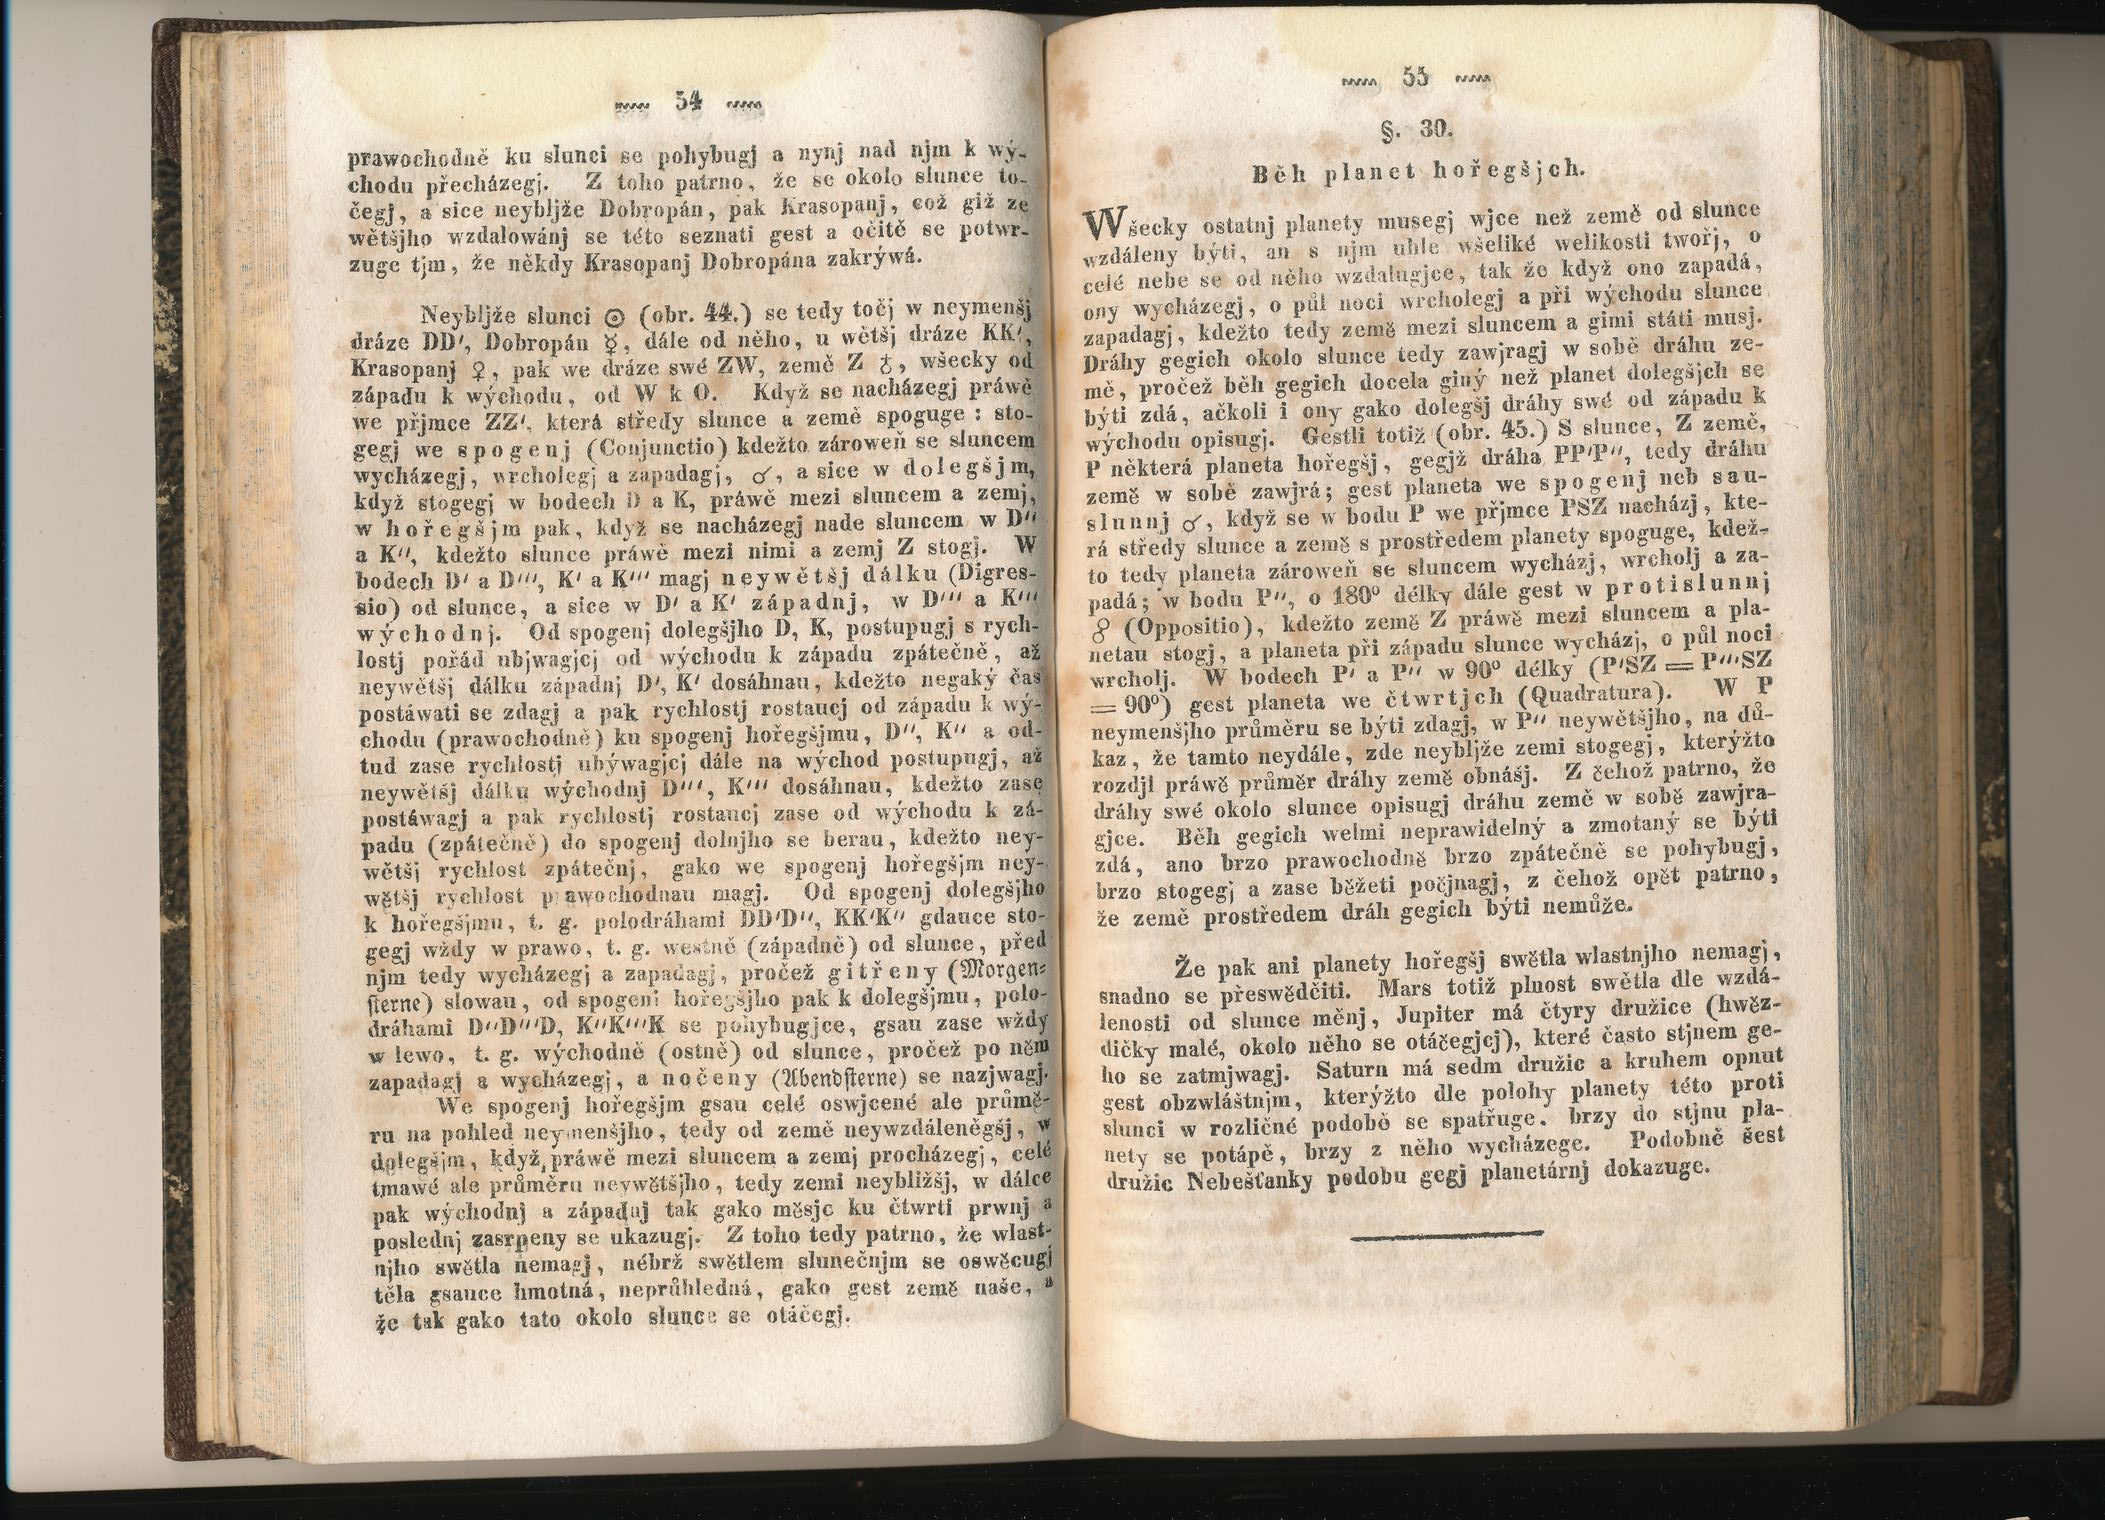 54
prawochodně ku slunci se pohybugj a nynj nad njm k wý-
chodu přecházegj. Z toho patrno, že se okolo slunce to-
čegj, a sice neybljže Dobropán, pak Krasopanj, což giž ze
wětšjho wzdalowánj se této seznati gest a očitě se potwr-
zuge tjm, že někdy Krasopanj Dobropána zakrýwá.
Neybljže slunci ☉ (obr. 44.) se tedy točj w neymenšj
dráze DD′, Dobropán ☿, dále od něho, u wětšj dráze KK′,
Krasopanj ♀, pak we dráze swé ZW, země Z ♁, wšecky od
západu k wýchodu, od W k O. Když se nacházegj práwě
we přjmce ZZ′, která středy slunce a země spoguge: sto-
gegj we spogenj (Conjunctio) kdežto zároweň se sluncem
wycházegj, wrcholegj a zapadagj, ☌, a sice w dolegšjm,
když stogegj w bodech D a K, práwě mezi sluncem a zemj,
w hořegšjm pak, když se nacházegj nade sluncem w D″
a K″, kdežto slunce práwě mezi nimi a zemj Z stogj. W
bodech D′ a D‴, K′ a K‴ magj neywětšj dálku (Digres-
sio) od slunce, a sice w D′ a K′ západnj, w D‴ a K‴
wýchodnj. Od spogenj dolegšjho D, K, postupugj s rych-
lostj pořád ubjwagjcj od wýchodu k západu zpátečně, až
neywětšj dálku západnj D′, K′ dosáhnau, kdežto negaký čas
postáwati se zdagj a pak rychlostj rostaucj od západu k wý-
chodu (prawochodně) ku spogenj hořegšjmu, D″, K″ a od-
tud zase rychlostj ubýwagjcj dále na wýchod postupugj, až
neywětšj dálku wýchodnj D‴, K‴ dosáhnau, kdežto zase
postáwagj a pak rychlostj rostaucj zase od wýchodu k zá-
padu (zpátečně) do spogenj dolnjho se berau, kdežto ney-
wětšj rychlost zpátečnj, gako we spogenj hořegšjm ney-
wětšj rychlost prawochodnau magj. Od spogenj dolegšjho
k hořegšjmu, t. g. polodráhami DD′D″, KK′K″ gdauce sto-
gegj wždy w prawo, t. g. westně (západně) od slunce, před
njm tedy wycházegj a zapadagj, pročež gitřeny (Morgen-
sterne) slowau, od spogeni hořegšjho pak k dolegšjmu, polo-
dráhami D″D‴D, K″K‴K se pohybugjce, gsau zase wždy
w lewo, t. g. wýchodně (ostně) od slunce, pročež po něm
zapadagj a wycházegj, a nočeny (Abendsterne) se nazjwagj.
We spogenj hořegšjm gsau celé oswjcené ale průmě-
ru na pohled neymenšjho, tedy od země neywzdáleněgšj, w
dolegšjm, když práwě mezi sluncem a zemj procházegj, celé
tmawé ale průměru neywětšjho, tedy zemi neybližšj, w dálce
pak wýchodnj a západnj tak gako měsjc ku čtwrti prwnj a
poslednj zasrpeny se ukazugj. Z toho tedy patrno, že wlast-
njho swětla nemagj, nébrž swětlem slunečnjm se oswěcugj
těla gsauce hmotná, neprůhledná, gako gest země naše, a
že tak gako tato okolo slunce se otáčegj.
55
§. 30.
Běh planet hořegšjch.
Wšecky ostatnj planety musegj wjce než země od slunce
wzdáleny býti, an s njm uhle wšeliké welikosti twořj, o
celé nebe se od něho wzdalugjce, tak že když ono zapadá,
ony wycházegj, o půl noci wrcholegj a při wýchodu slunce
zapadagj, kdežto tedy země mezi sluncem a gimi státi musj.
Dráhy gegich okolo slunce tedy zawjragj w sobě dráhu ze-
mě, pročež běh gegich docela giný než planet dolegšjch se
býti zdá, ačkoli i ony gako dolegšj dráhy swé od západu k
wýchodu opisugj. Gestli totiž (obr. 45.) S slunce, Z země,
P některá planeta hořegšj, gegjž dráha PP′P″, tedy dráhu
země w sobě zawjrá; gest planeta we spogenj neb sau-
slunnj ☌, když se w bodu P we přjmce PSZ nacházj, kte-
rá středy slunce a země s prostředem planety spoguge, kdež-
to tedy planeta zároweň se sluncem wycházj, wrcholj a za-
padá; w bodu P″, o 180° délky dále gest w protislunnj
☍ (Oppositio), kdežto země Z práwě mezi sluncem a pla-
netau stogj, a planeta při západu slunce wycházj, o půl noci
wrcholj. W bodech P′ a P″ w 90° délky (P′SZ = P‴SZ
= 90°) gest planeta we čtwrtjch (Quadratura). W P
neymenšjho průměru se býti zdagj, w P″ neywětšjho, na dů-
kaz, že tamto neydále, zde neybljže zemi stogegj, kterýžto
rozdjl práwě průměr dráhy země obnášj. Z čehož patrno, že
dráhy swé okolo slunce opisugj dráhu země w sobě zawjra-
gjce. Běh gegich welmi neprawidelný a zmotaný se býti
zdá, ano brzo prawochodně brzo zpátečně se pohybugj,
brzo stogegj a zase běžeti počjnagj, z čehož opět patrno,
že země prostředem dráh gegich býti nemůže.
Že pak ani planety hořegšj swětla wlastnjho nemagj,
snadno se přeswědčiti. Mars totiž plnost swětla dle wzdá-
lenosti od slunce měnj, Jupiter má čtyry družice (hwěz-
dičky malé, okolo něho se otáčegjcj), které často stjnem ge-
ho se zatmjwagj. Saturn má sedm družic a kruhem opnut
gest obzwláštnjm, kterýžto dle polohy planety této proti
slunci w rozličné podobě se spatřuge, brzy do stjnu pla-
nety se potápě, brzy z něho wycházege. Podobně šest
družic Nebešťanky podobu gegj planetárnj dokazuge.